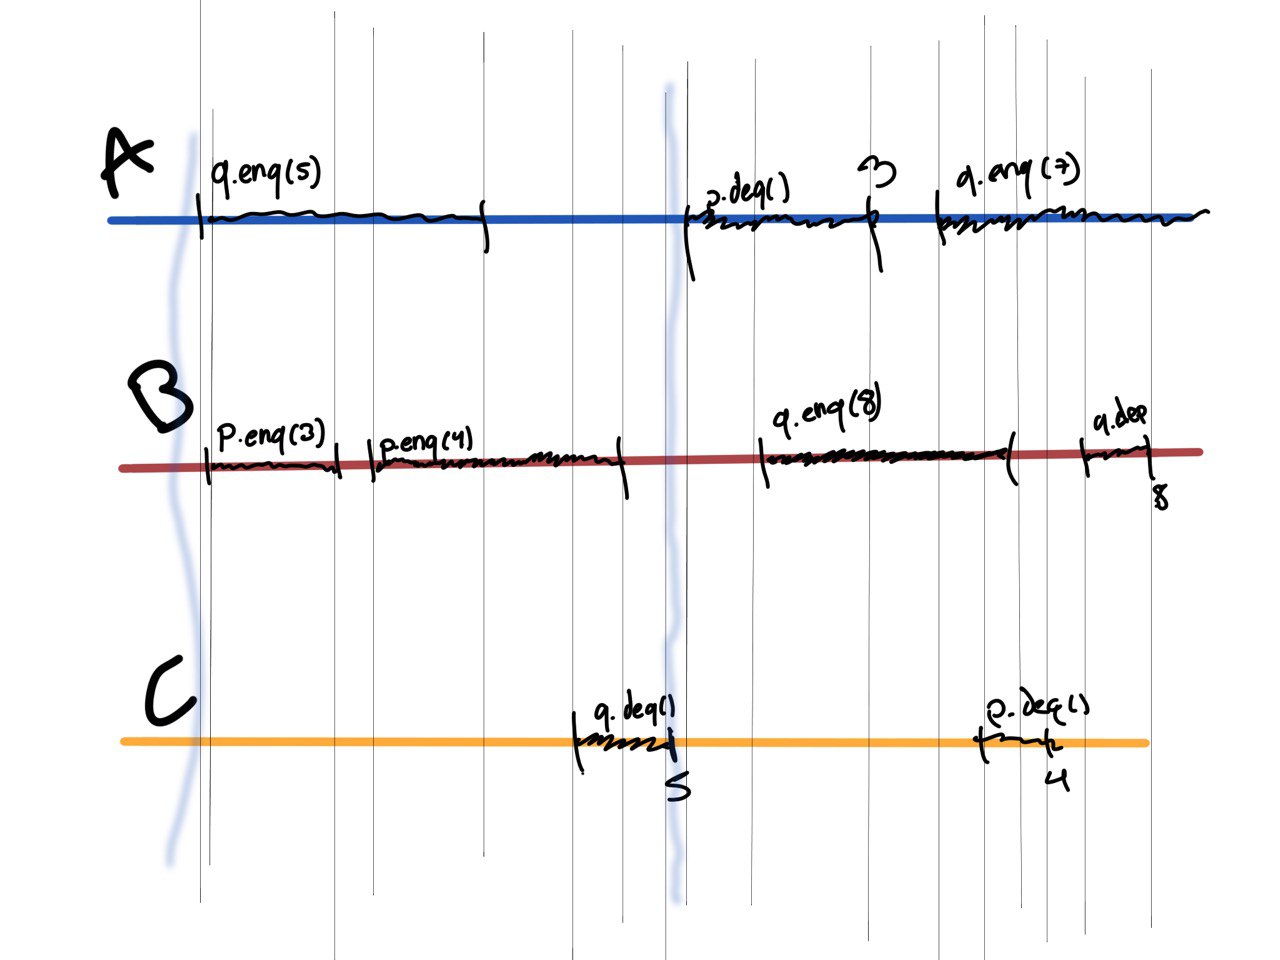 A
q.enq(5)
p.deq()
3
q.enq(7)
B
p.enq(3)
p.enq(4)
q.enq(8)
q.dep
8
C
q.deq()
5
p.deq()
4